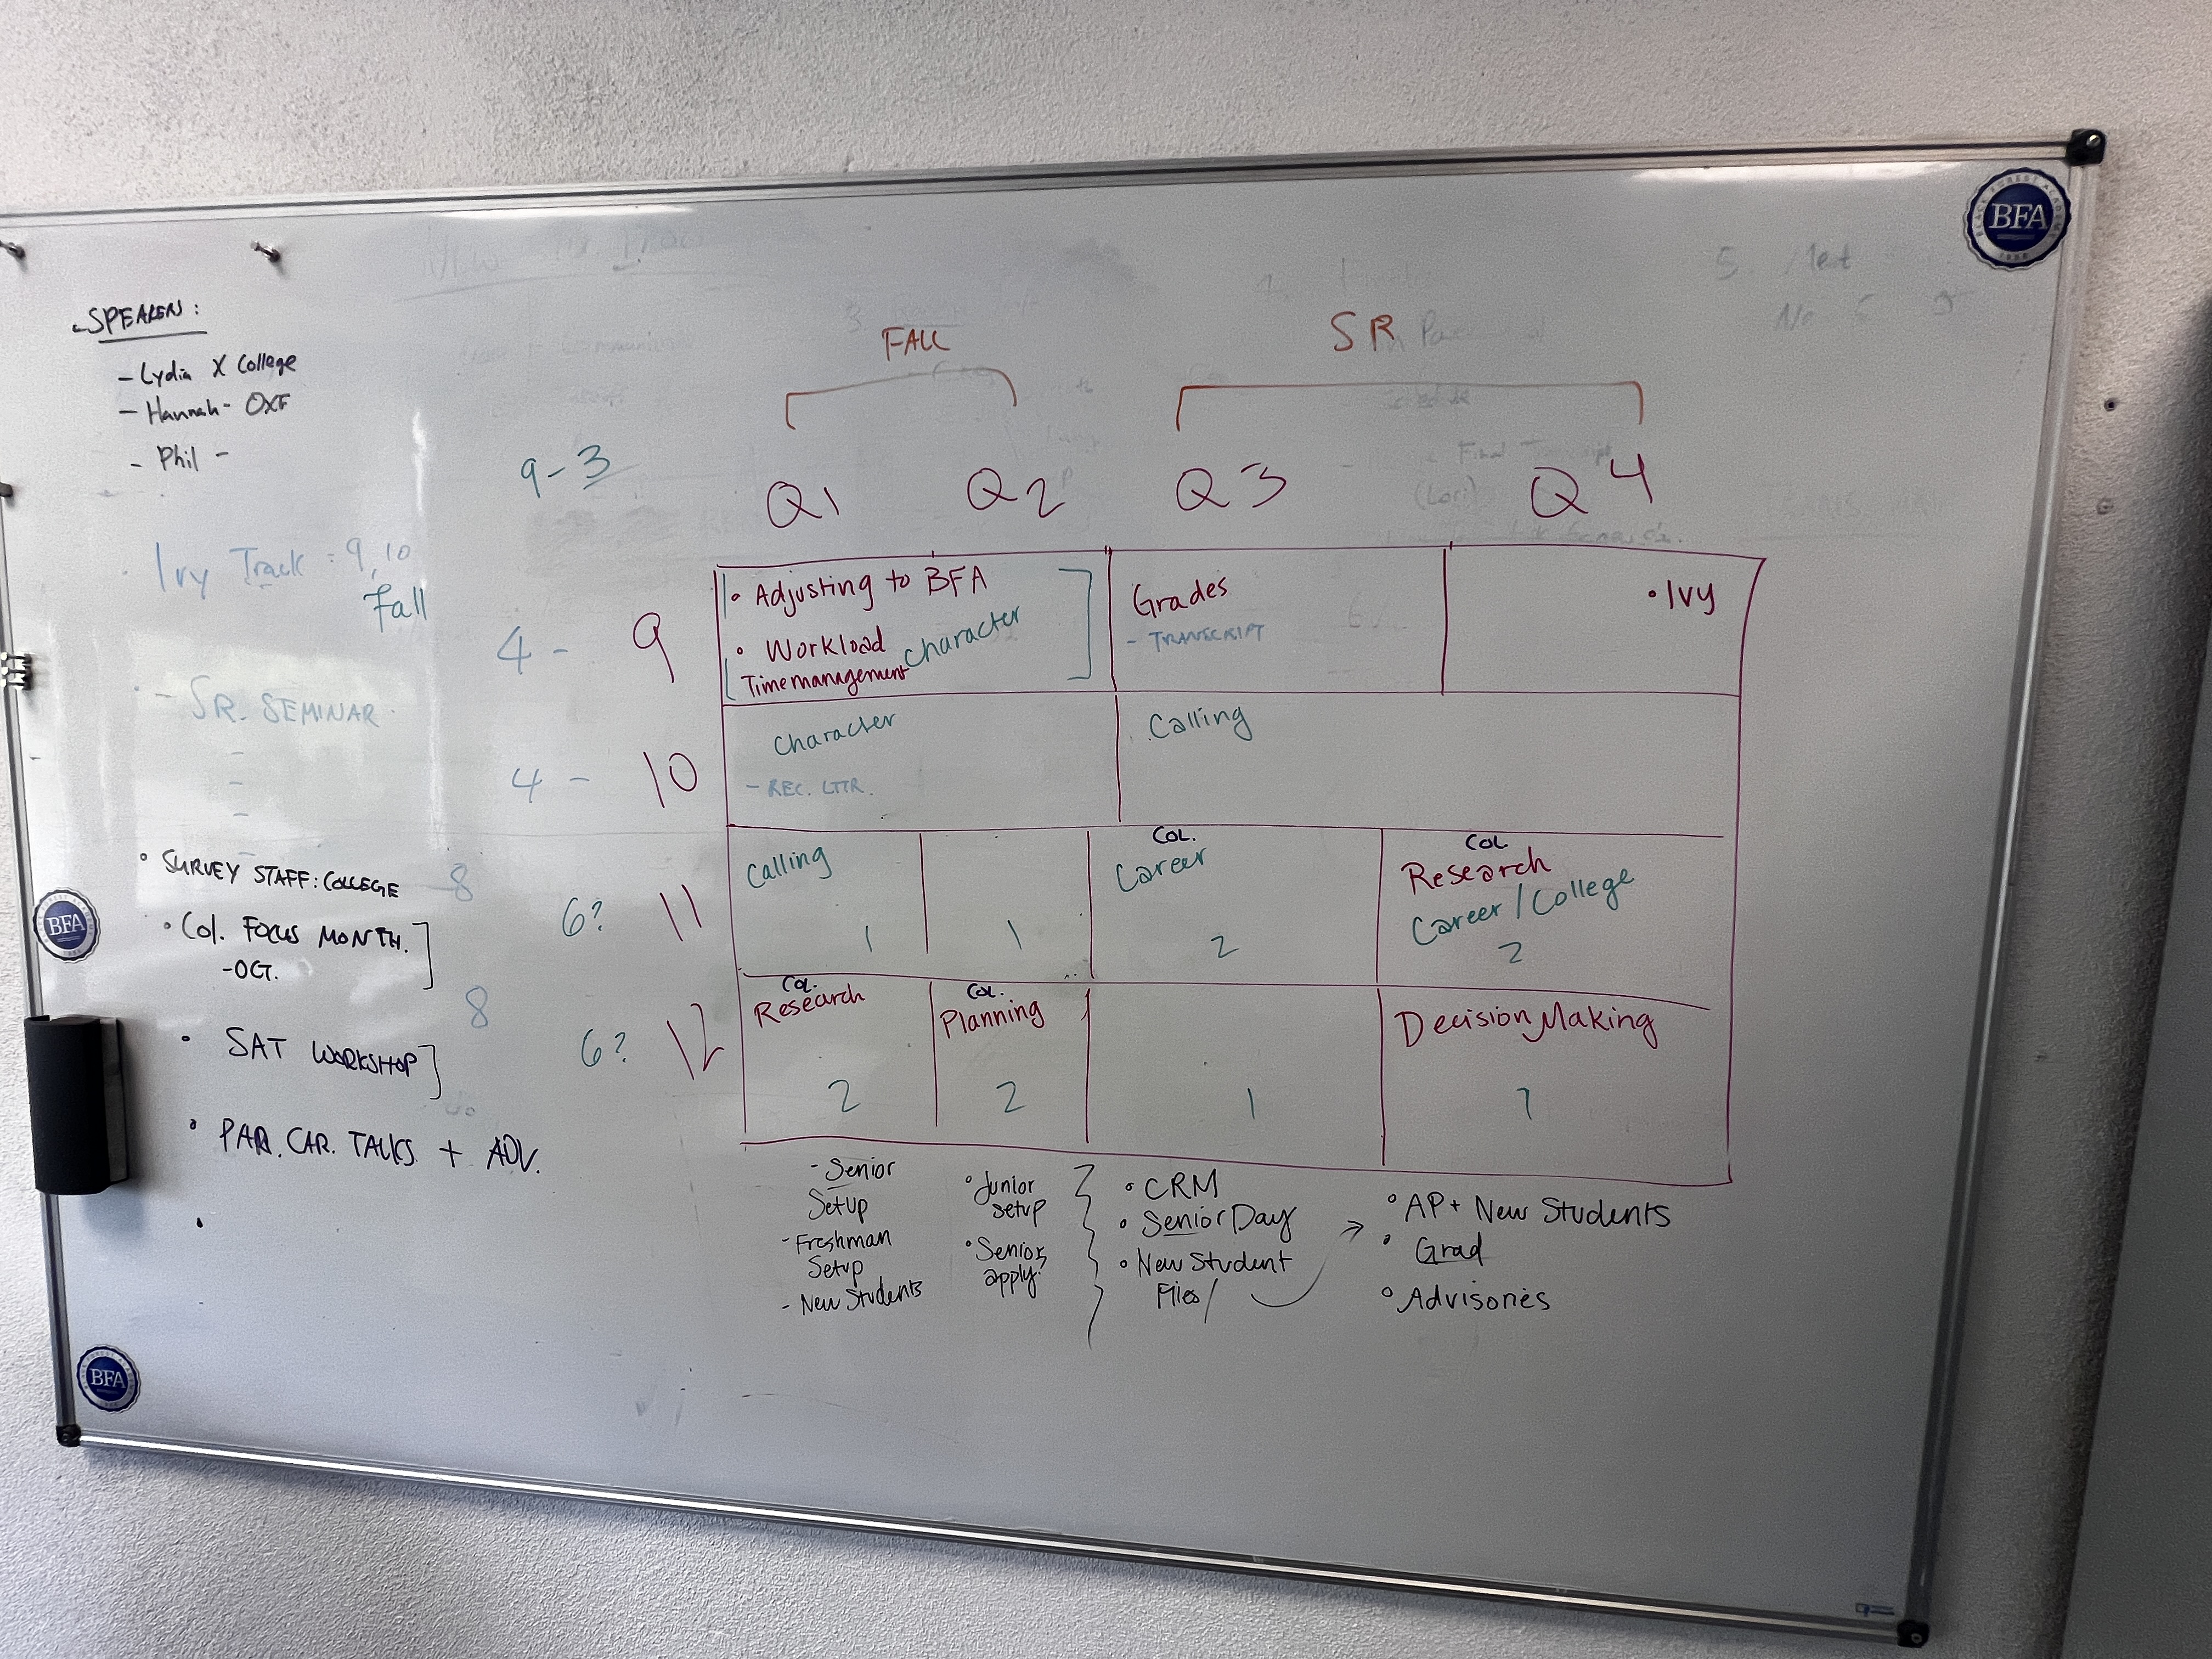 BFA
- SPEAKER:
- Lydia X College
- Hannah - OXF
- Phil -
Ivy Track : 9, 10
Fall
- SR. SEMINAR
-
-
-
• SURVEY STAFF: COLLEGE
• Col. FOCUS MONTH.
- OCT.
• SAT WORKSHOP
• PAR. CAR. TALKS + ADV.
FALL
SR
9-3
Q1 Q2 Q3 Q4
4 - 9
• Adjusting to BFA
• Workload
Time management
Character
Grades
- TRANSCRIPT
• Ivy
4 - 10
Character
- REC. LTTR.
Calling
8
6? 11
Calling
1
1
COL.
Career
2
COL
Research
Career / College
2
8
6? 12
COL.
Research
2
COL.
Planning
2
1
Decision Making
1
- Senior
Setup
- Freshman
Setup
- New Students
• Junior
setup
• Seniors
apply!
• CRM
• Senior Day
• New Student
Files/
• AP + New Students
• Grad
• Advisories
BFA
BFA